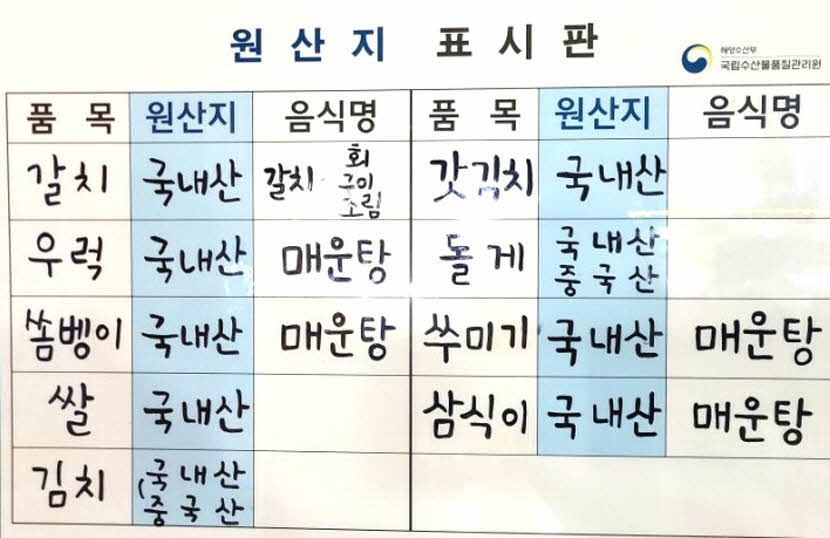 원산지 표시판
해양수산부
국립수산물품질관리원
품목 원산지 음식명 품목 원산지 음식명
갈치 국내산 갈치 회 구이 조림 갓김치 국내산
우럭 국내산 매운탕 돌게 국내산 중국산
쏨벵이 국내산 매운탕 쑤미기 국내산 매운탕
쌀 국내산 삼식이 국내산 매운탕
김치 (국내산 중국산